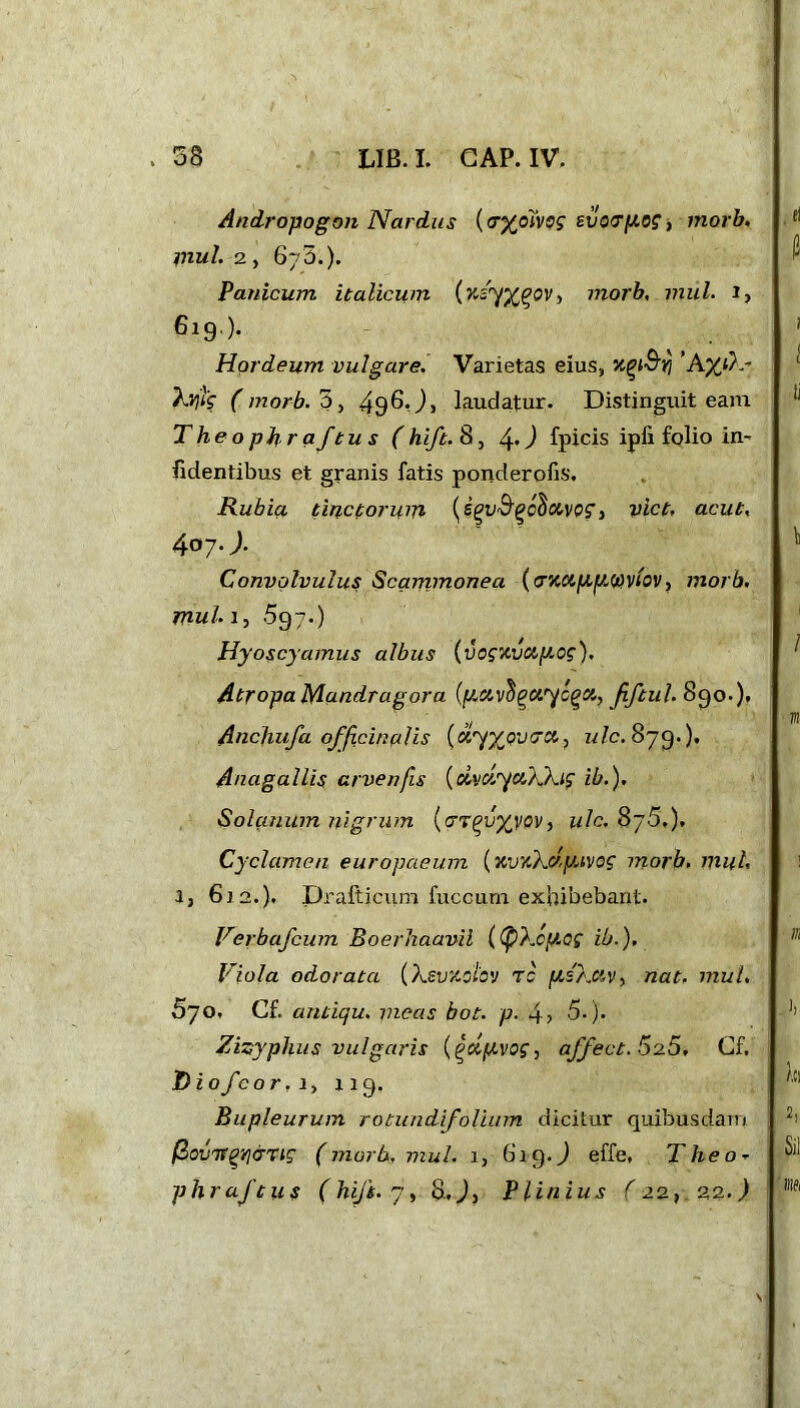 38 LIB. I. CAP. IV.
Andropogon Nardus (σχοῖνος εὔοσμος, morb.
mul. 2, 673.).
Panicum italicum (κέγχρον, morb. mul. 1,
619.).
Hordeum vulgare. Varietas eius, κριθὴ Ἀχιλ-
ληῒς (morb. 3, 496.), laudatur. Distinguit eam
Theophraſtus (hiſt. 8, 4.) ſpicis ipſi folio in-
ſidentibus et granis ſatis ponderoſis.
Rubia tinctorum (ἐρυθρόδανος, vict. acut.
407.).
Convolvulus Scammonea (σκαμμωνίον, morb.
mul. 1, 597.)
Hyoscyamus albus (ὑοςκύαμος).
Atropa Mandragora (μανδραγόρα, fiſtul. 890.),
Anchuſa officinalis (ἄγχουσα, ulc. 879.).
Anagallis arvenſis (ἀνάγαλλις ib.).
Solanum nigrum (στρύχνον, ulc. 875.).
Cyclamen europaeum (κυκλάμινος morb. mul.
1, 612.). Draſticum ſuccum exhibebant.
Verbaſcum Boerhaavii (φλόμος ib.).
Viola odorata (λευκοΐον τὸ μέλαν, nat. mul.
570. Cf. antiqu. meas bot. p. 4, 5.).
Zizyphus vulgaris (ῥάμνος, affect. 525. Cf.
Dioſcor. 1, 119.
Bupleurum rotundifolium dicitur quibusdam
βούπρηστις (morb. mul. 1, 619.) eſſe, Theo-
phraſtus (hiſt. 7, 8.), Plinius (22, 22.)